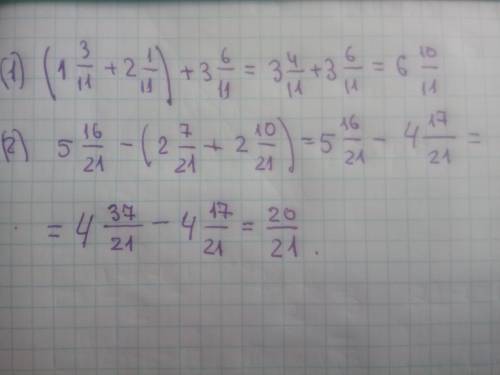 (1) (1 3/11 + 2 1/11) + 3 6/11 = 3 4/11 + 3 6/11 = 6 10/11
(2) 5 16/21 − (2 7/21 + 2 10/21) = 5 16/21 − 4 17/21 =
= 4 37/21 − 4 17/21 = 20/21.